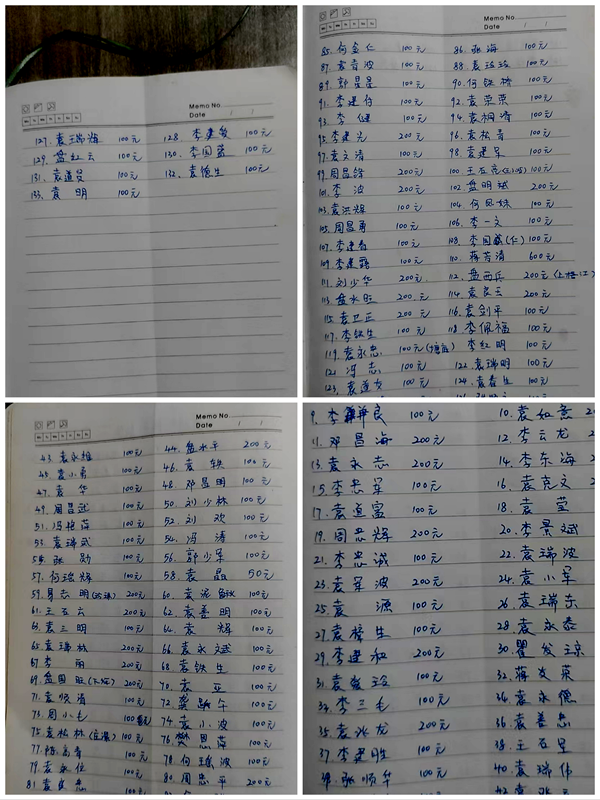 Memo No.
Date / /
127. 袁瑞海 100元 128. 李建敏 100元
129. 盘红云 100元 130. 李国蓝 100元
131. 袁道员 100元 132. 袁德生 100元
133. 袁明 100元
Memo No.
Date / /
85. 何金仁 100元 86. 张海 100元
87. 袁春波 100元 88. 袁玲玲 100元
89. 郭星星 100元 90. 何铁桥 100元
91. 李建行 100元 92. 袁荣荣 100元
93. 李健 100元 94. 袁桐清 100元
95. 李建光 200元 96. 袁松青 100元
97. 袁文清 100元 98. 袁建军 100元
99. 周昌锋 200元 100. 王石克 100元
101. 李波 200元 102. 盘明斌 200元
103. 袁洪辉 100元 104. 何凤妹 100元
105. 周昌勇 100元 106. 李一文 100元
107. 李建春 100元 108. 李国藏(仁) 100元
109. 李建 100元 110. 蒋芳清 600元
111. 刘少华 200元 112. 盘西兵 200元
113. 盘水旺 200元 114. 袁良玉 200元
115. 袁卫正 200元 116. 袁剑平 100元
117. 李铁生 100元 118. 李佩福 100元
119. 袁永忠 100元 李红明 100元
121. 冯志 100元 122. 袁瑞明 100元
123. 袁莲女 100元 124. 袁春生 100元
Memo No.
Date / /
43. 袁永雄 100元 44. 盘水平 200元
45. 袁小勇 100元 46. 袁轶 100元
47. 袁华 100元 48. 邓昌明 100元
49. 周昌武 100元 50. 刘少林 100元
51. 冯艳萍 100元 52. 刘欢 100元
53. 袁瑞武 100元 54. 冯涛 100元
55. 张勋 100元 56. 郭少军 100元
57. 何治辉 100元 58. 袁晶 50元
59. 易志明 200元 60. 袁泥秋 100元
61. 王石云 200元 62. 袁善明 100元
63. 袁三明 100元 64. 袁辉 100元
65. 袁瑞林 200元 66. 袁永斌 100元
67. 李丽 200元 68. 袁铁生 100元
69. 盘国旺 200元 70. 袁亚 100元
71. 袁顺清 100元 72. 龚午 100元
73. 周小毛 100元 74. 袁小波 100元
75. 袁松林 100元 76. 樊思萍 100元
77. 陈高青 100元 78. 何斌波 100元
79. 袁永位 100元 80. 周忠平 200元
81. 袁良忠 100元
9. 李良 100元 10. 袁如意
11. 邓昌海 200元 12. 李云龙
13. 袁永志 200元 14. 李东海
15. 李忠军 100元 16. 袁克文
17. 袁道富 100元 18. 袁莹
19. 周忠辉 200元 20. 李景斌
21. 李忠诚 100元 22. 袁瑞波
23. 袁军波 200元 24. 袁小军
25. 袁源 100元 26. 袁瑞东
27. 袁梓生 100元 28. 袁永泰
29. 李建和 200元 30. 瞿发琼
31. 袁玲 100元 32. 蒋友荣
33. 李三毛 100元 34. 袁永德
35. 袁水龙 200元 36. 袁善忠
37. 李建胜 100元 38. 王石星
张顺华 100元 40. 袁瑞伟